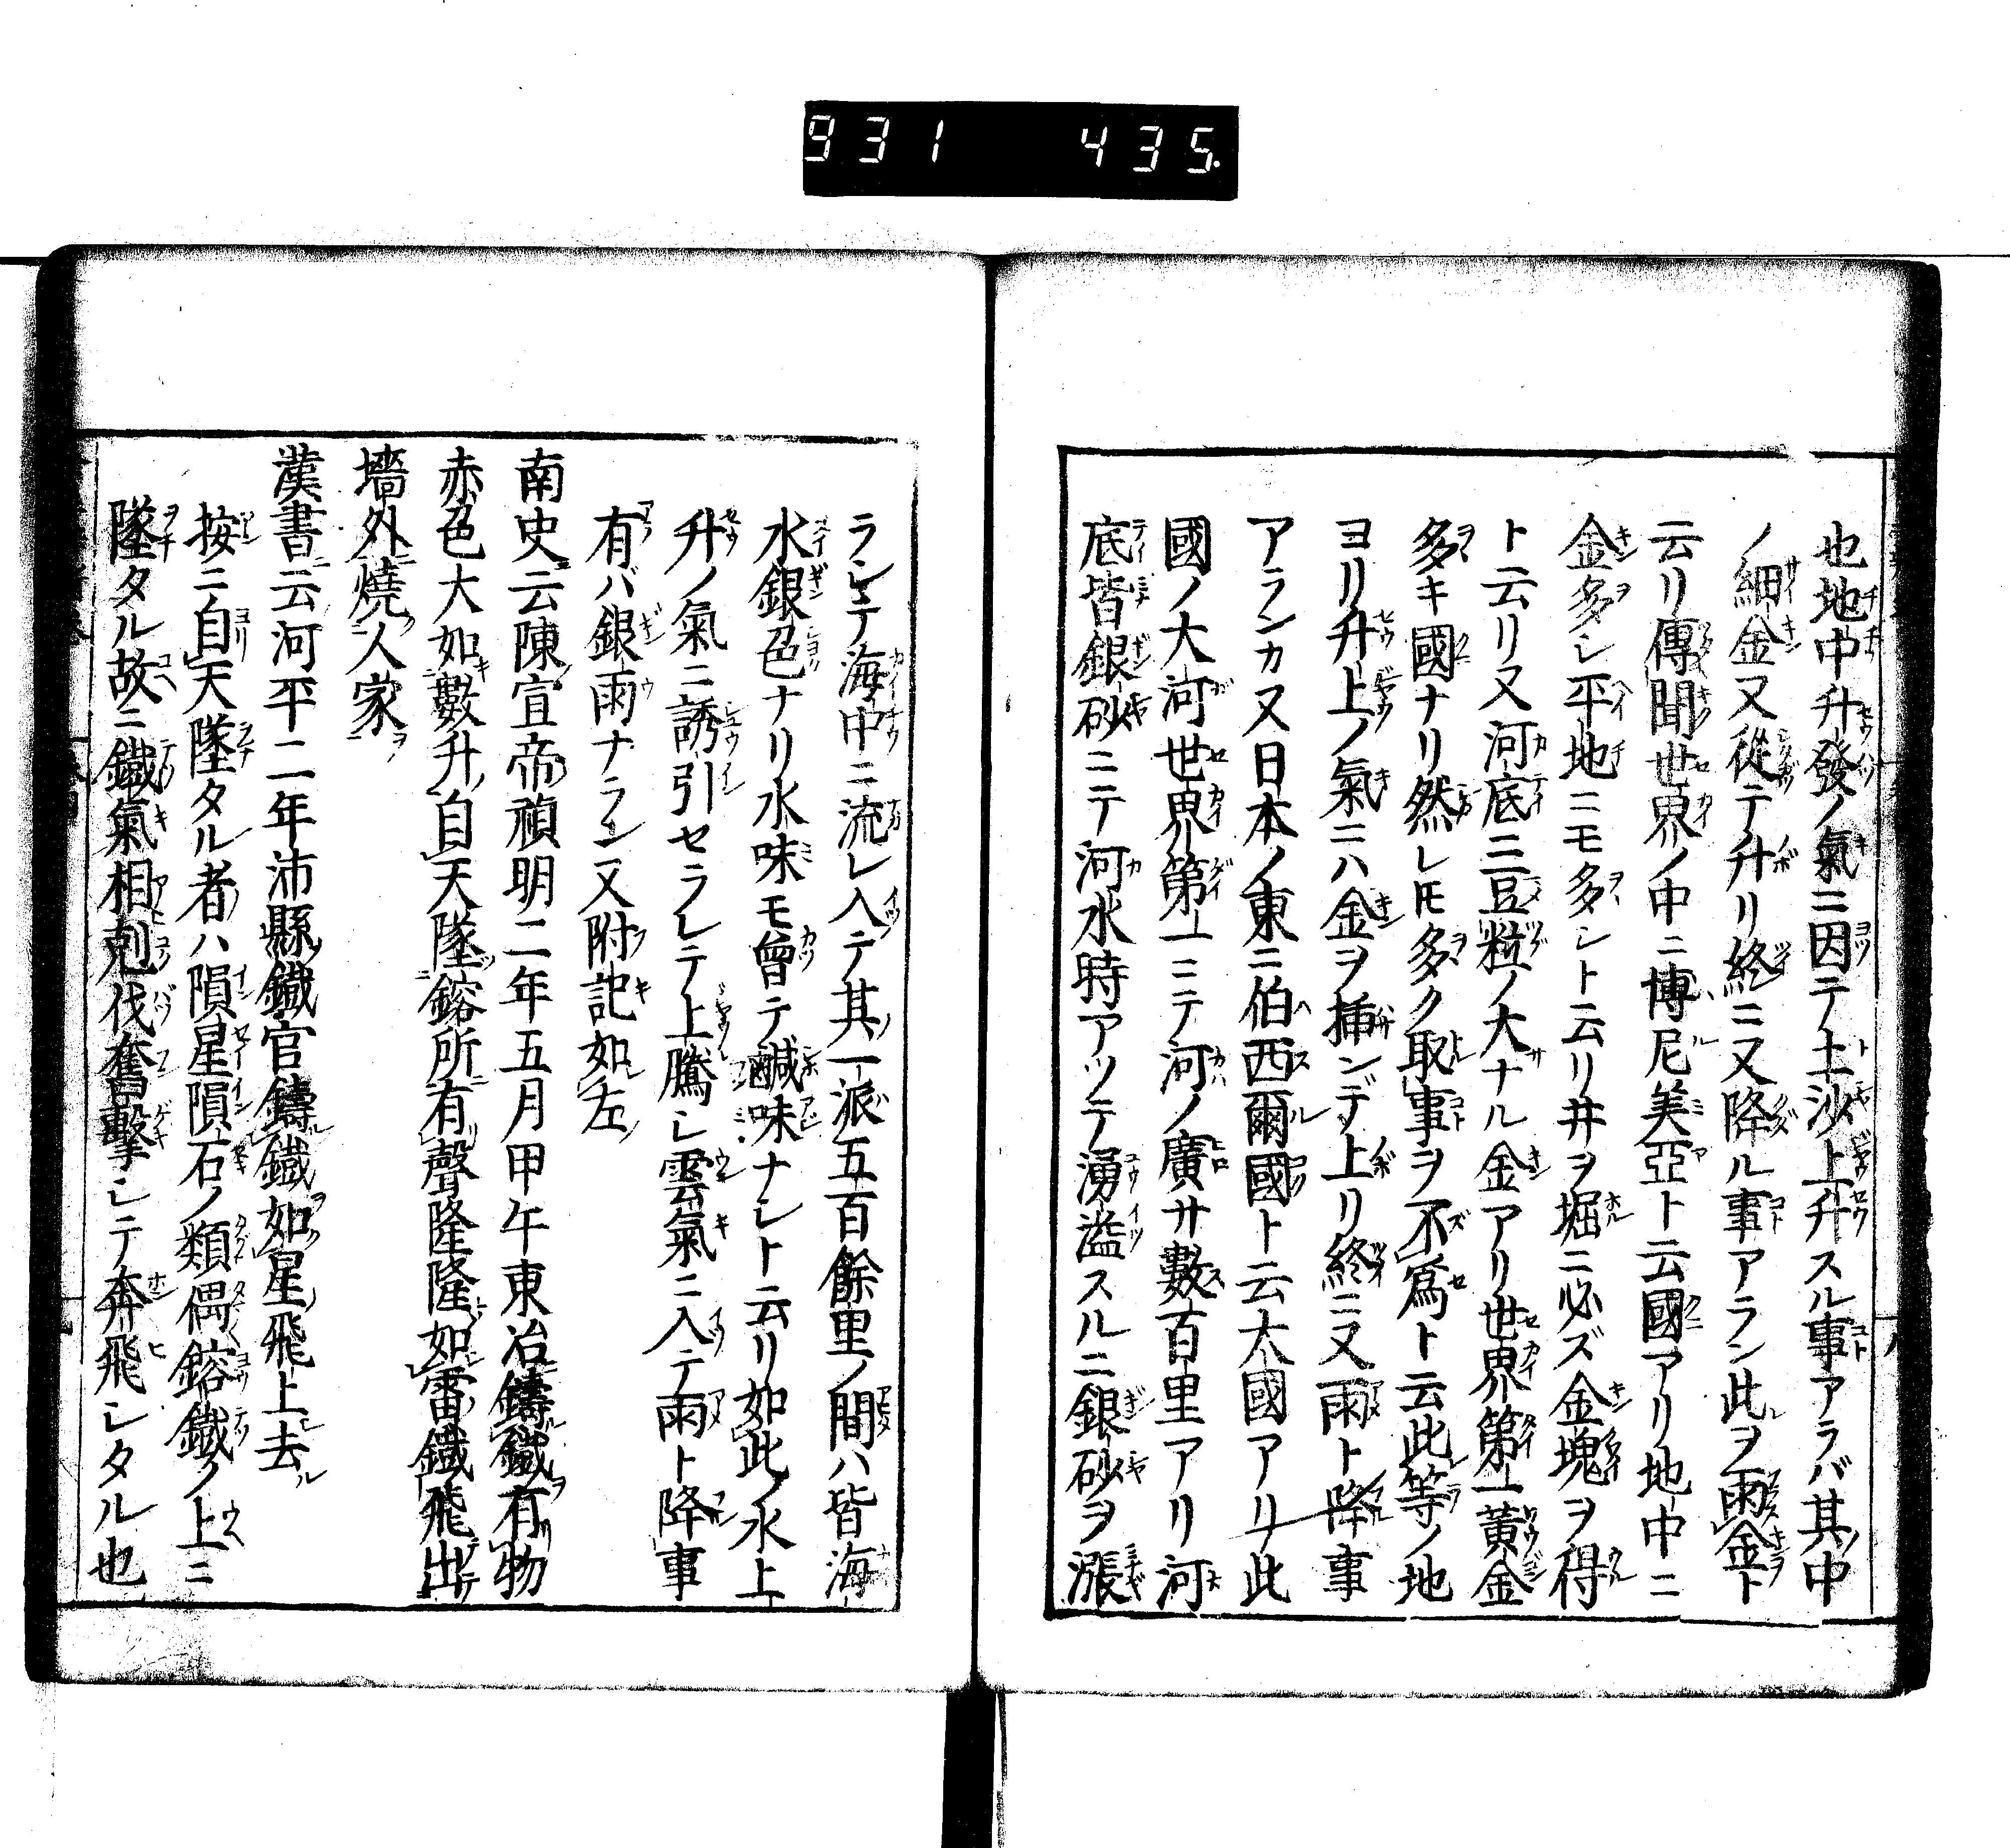 931 435.
也地中升發ノ氣ニ因テ土沙上升スル事アラバ其中
ノ細金又從テ升リ終ニ又降ル事アラン此ヲ雨金ト
云リ傳聞世界ノ中ニ博尼美亞ト云國アリ地中ニ
金多シ平地ニモ多シト云リ井ヲ堀ニ必ズ金塊ヲ得
ト云リ又河底ニ豆粒ノ大ナル金アリ世界第一黃金
多キ國ナリ然レ𪜈多ク取事ヲ不爲ト云此等ノ地
ヨリ升上ノ氣ニハ金ヲ挿ンデ上リ終ニ又雨ト降事
アランカ又日本ノ東ニ伯西爾國ト云大國アリ此
國ノ大河世界第一ニテ河ノ廣サ數百里アリ河
底皆銀砂ニテ河水時アツテ湧溢スルニ銀砂ヲ漲
ラシテ海中ニ流レ入テ其一派五百餘里ノ間ハ皆海
水銀色ナリ水味モ曾テ鹹味ナシト云リ如此ノ水上
升ノ氣ニ誘引セラレテ上騰シ雲氣ニ入テ雨ト降事
有バ銀雨ナラン又附記如左
南史云陳宣帝禎明二年五月甲午東冶鑄鐵有物
赤色大如數升自天墜鎔所有聲隆隆如雷鐵飛出
墻外燒人家
漢書云河平二年沛縣鐵官鑄鐵如星飛上去
按ニ自天墜タル者ハ隕星隕石ノ類偶鎔鐵ノ上ニ
墜タル故ニ鐵氣相剋伐奮擊シテ奔飛シタル也